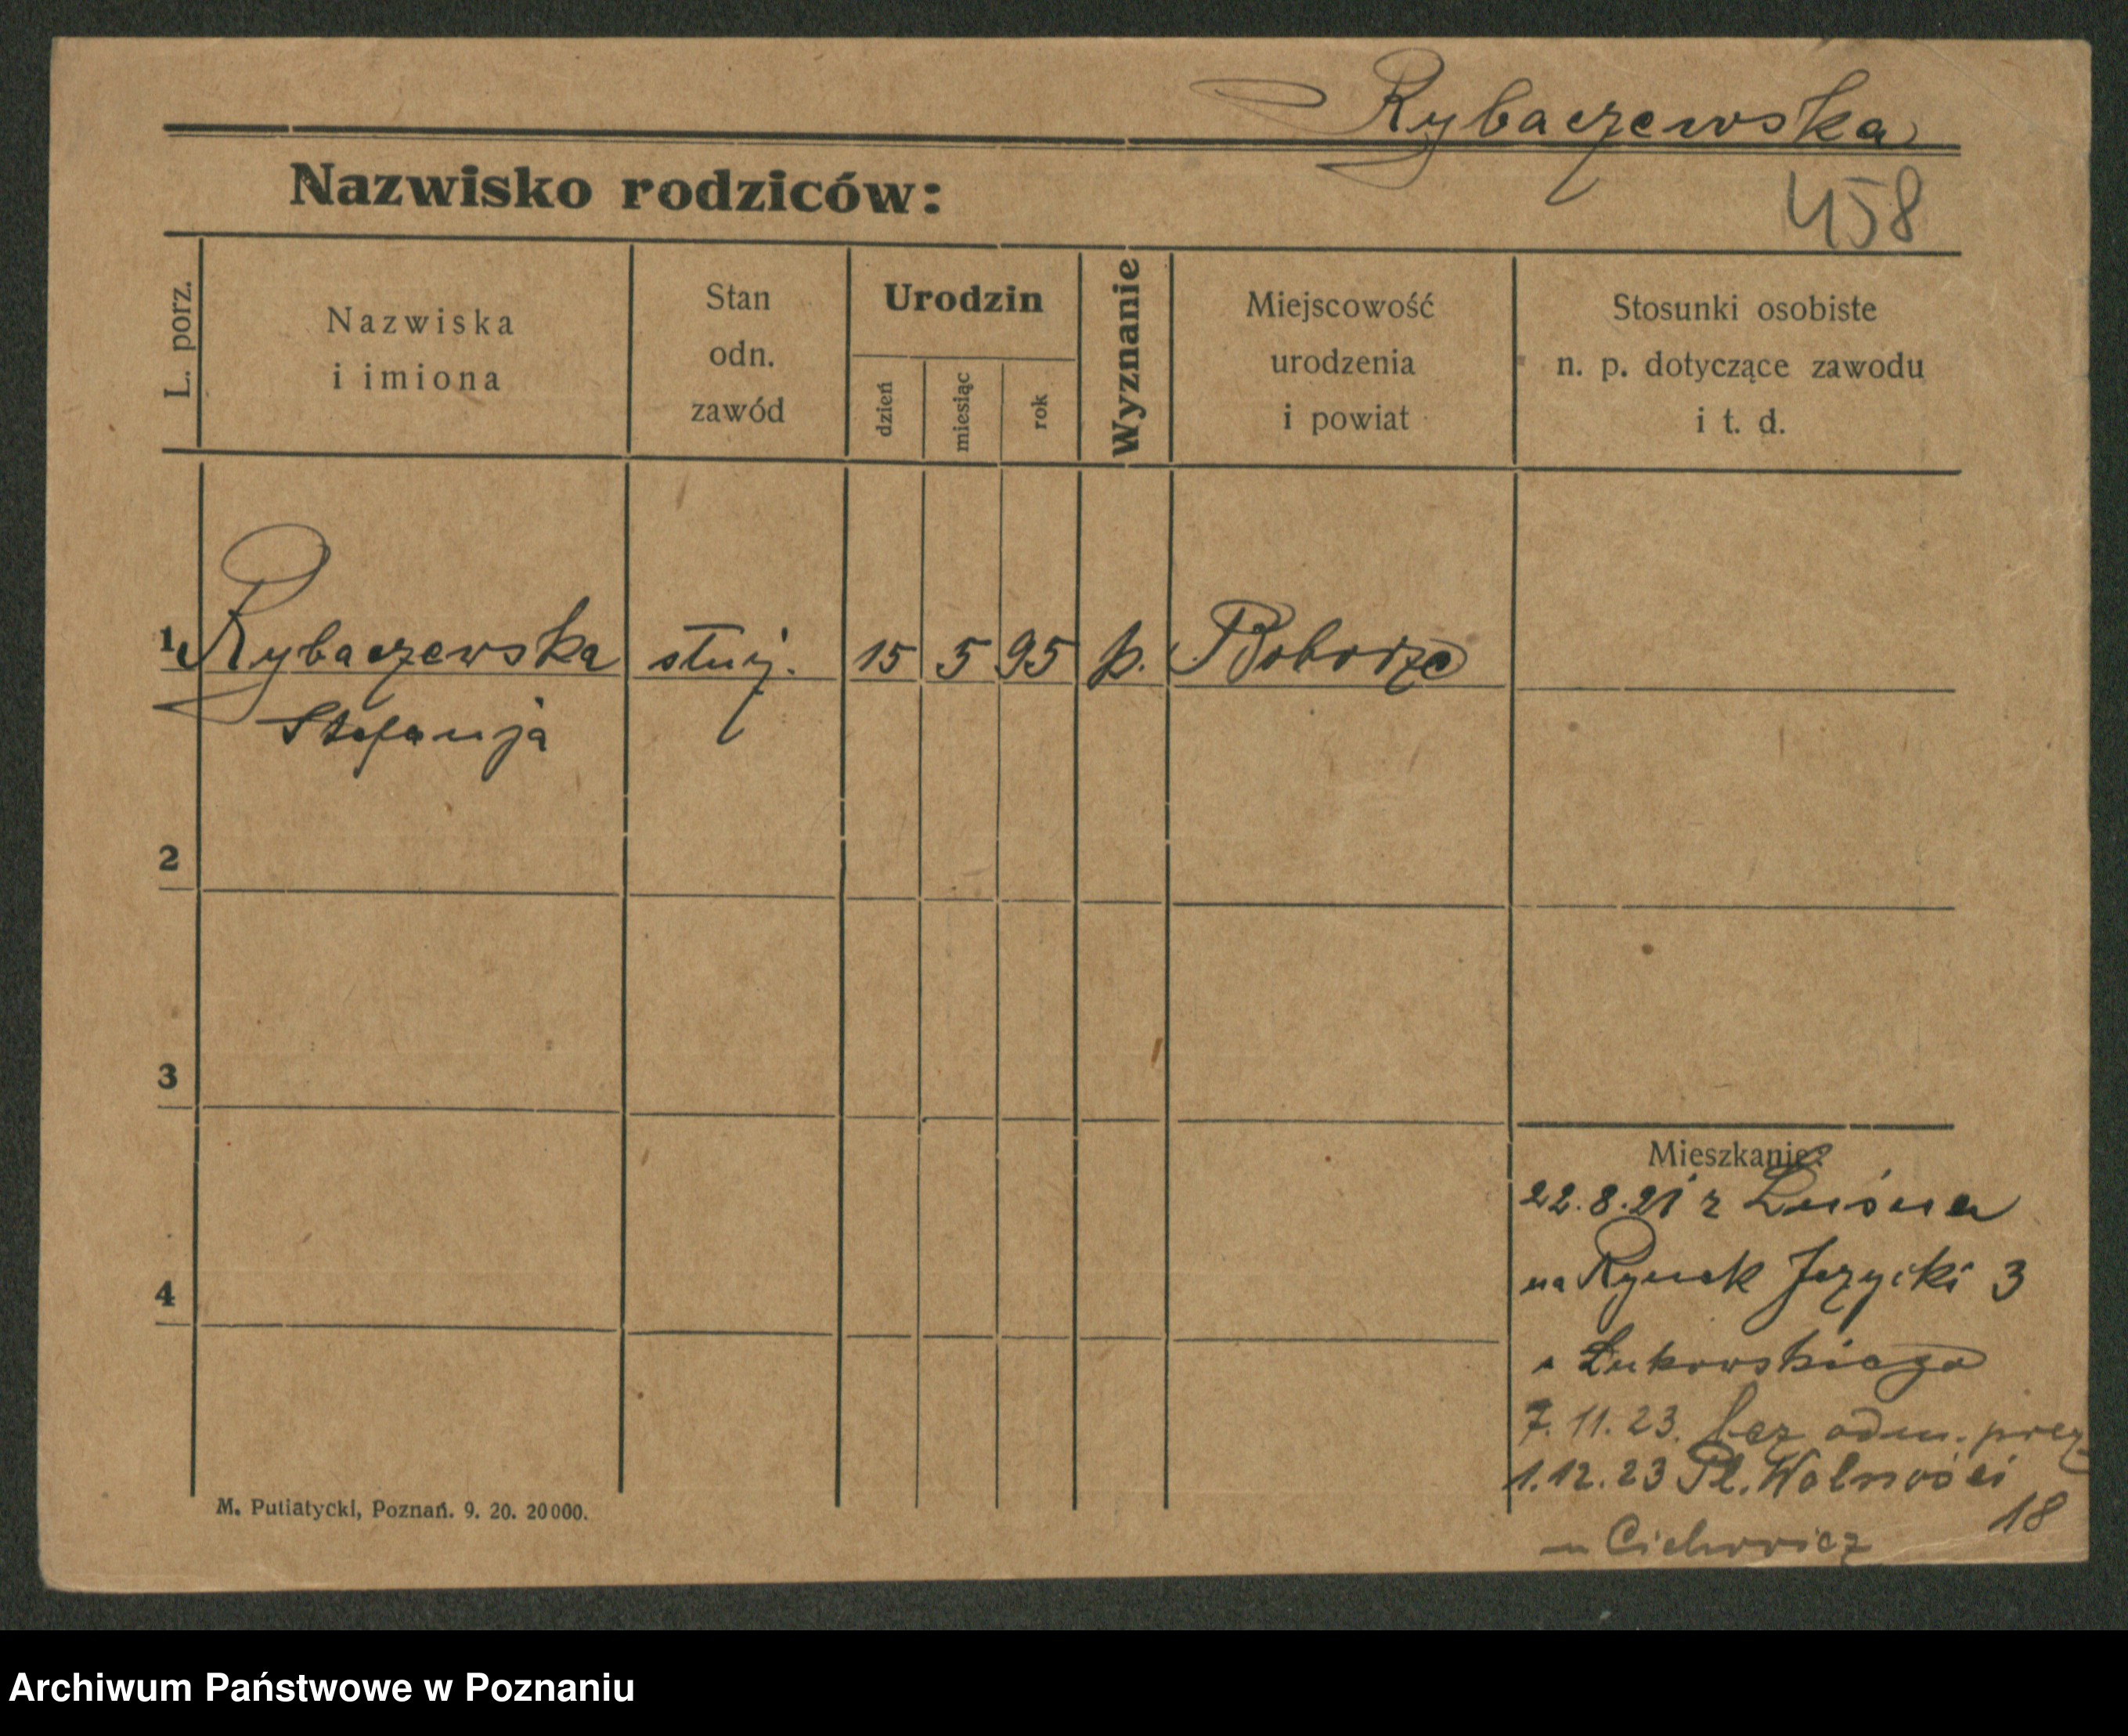 Rybaczewska
Nazwisko rodziców:
458
L. porz.
Nazwiska
i imiona
Stan
odn.
zawód
Urodzin
dzień
miesiąc
rok
Wyznanie
Miejscowość
urodzenia
i powiat
Stosunki osobiste
n. p. dotyczące zawodu
i t. d.
1 Rybaczewska służ. 15 5 95 k.
Stefanja
2
3
4
Mieszkanie:
22.8.21 z
na Rynek Jeżycki 3
Łukowskiego
7.11.23. bez odm.
1.12.23 Pl. Wolności
18
Cichowicz
M. Putiatycki, Poznań. 9. 20. 20000.
Archiwum Państwowe w Poznaniu